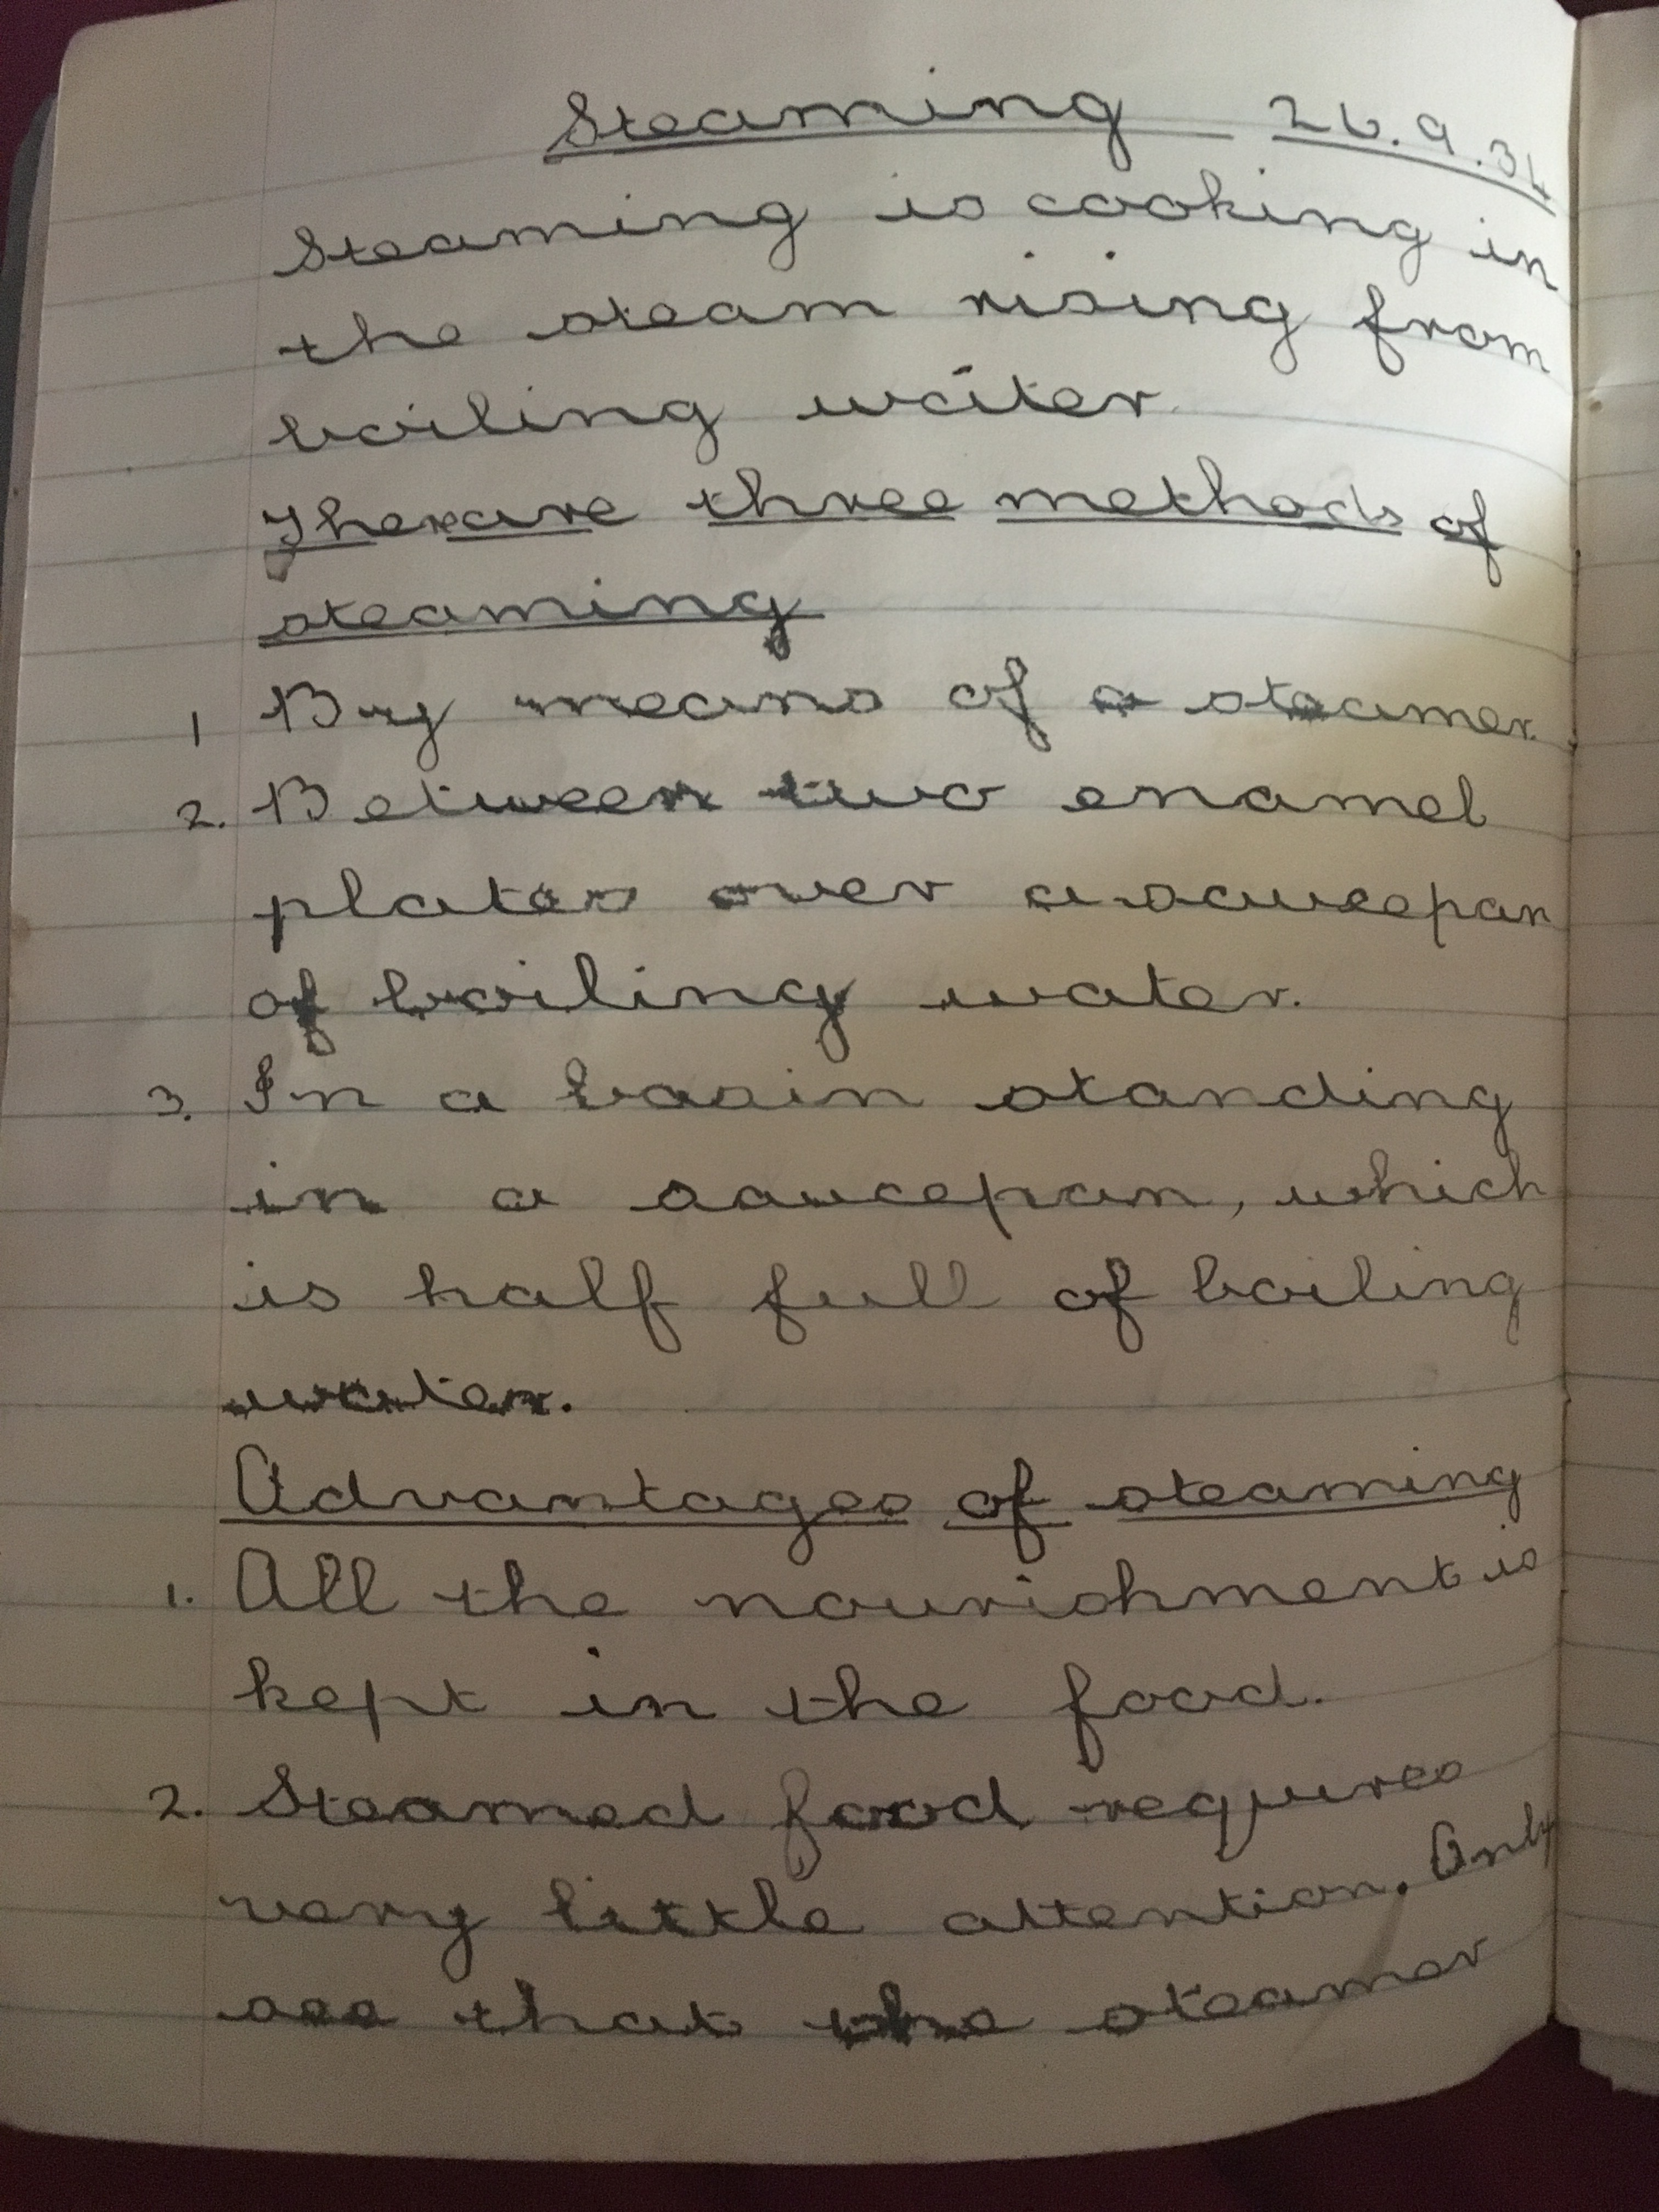 Steaming 26.9.34
Steaming is cooking in
the steam rising from
boiling water.
Therare three methods of
steaming
1 By means of a steamer.
2. Between two enamel
plates over a saucepan
of boiling water.
3. In a basin standing
in a saucepan, which
is half full of boiling
water.
Advantages of steaming
1. All the nourishment is
kept in the food.
2. Steamed food requires
very little attention. Only
see that the steamer